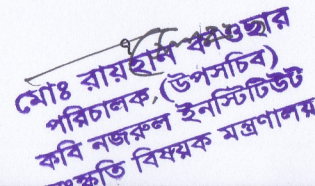 মোঃ রায়হান কাওছার
পরিচালক, (উপসচিব)
কবি নজরুল ইনস্টিটিউট
সংস্কৃতি বিষয়ক মন্ত্রণালয়